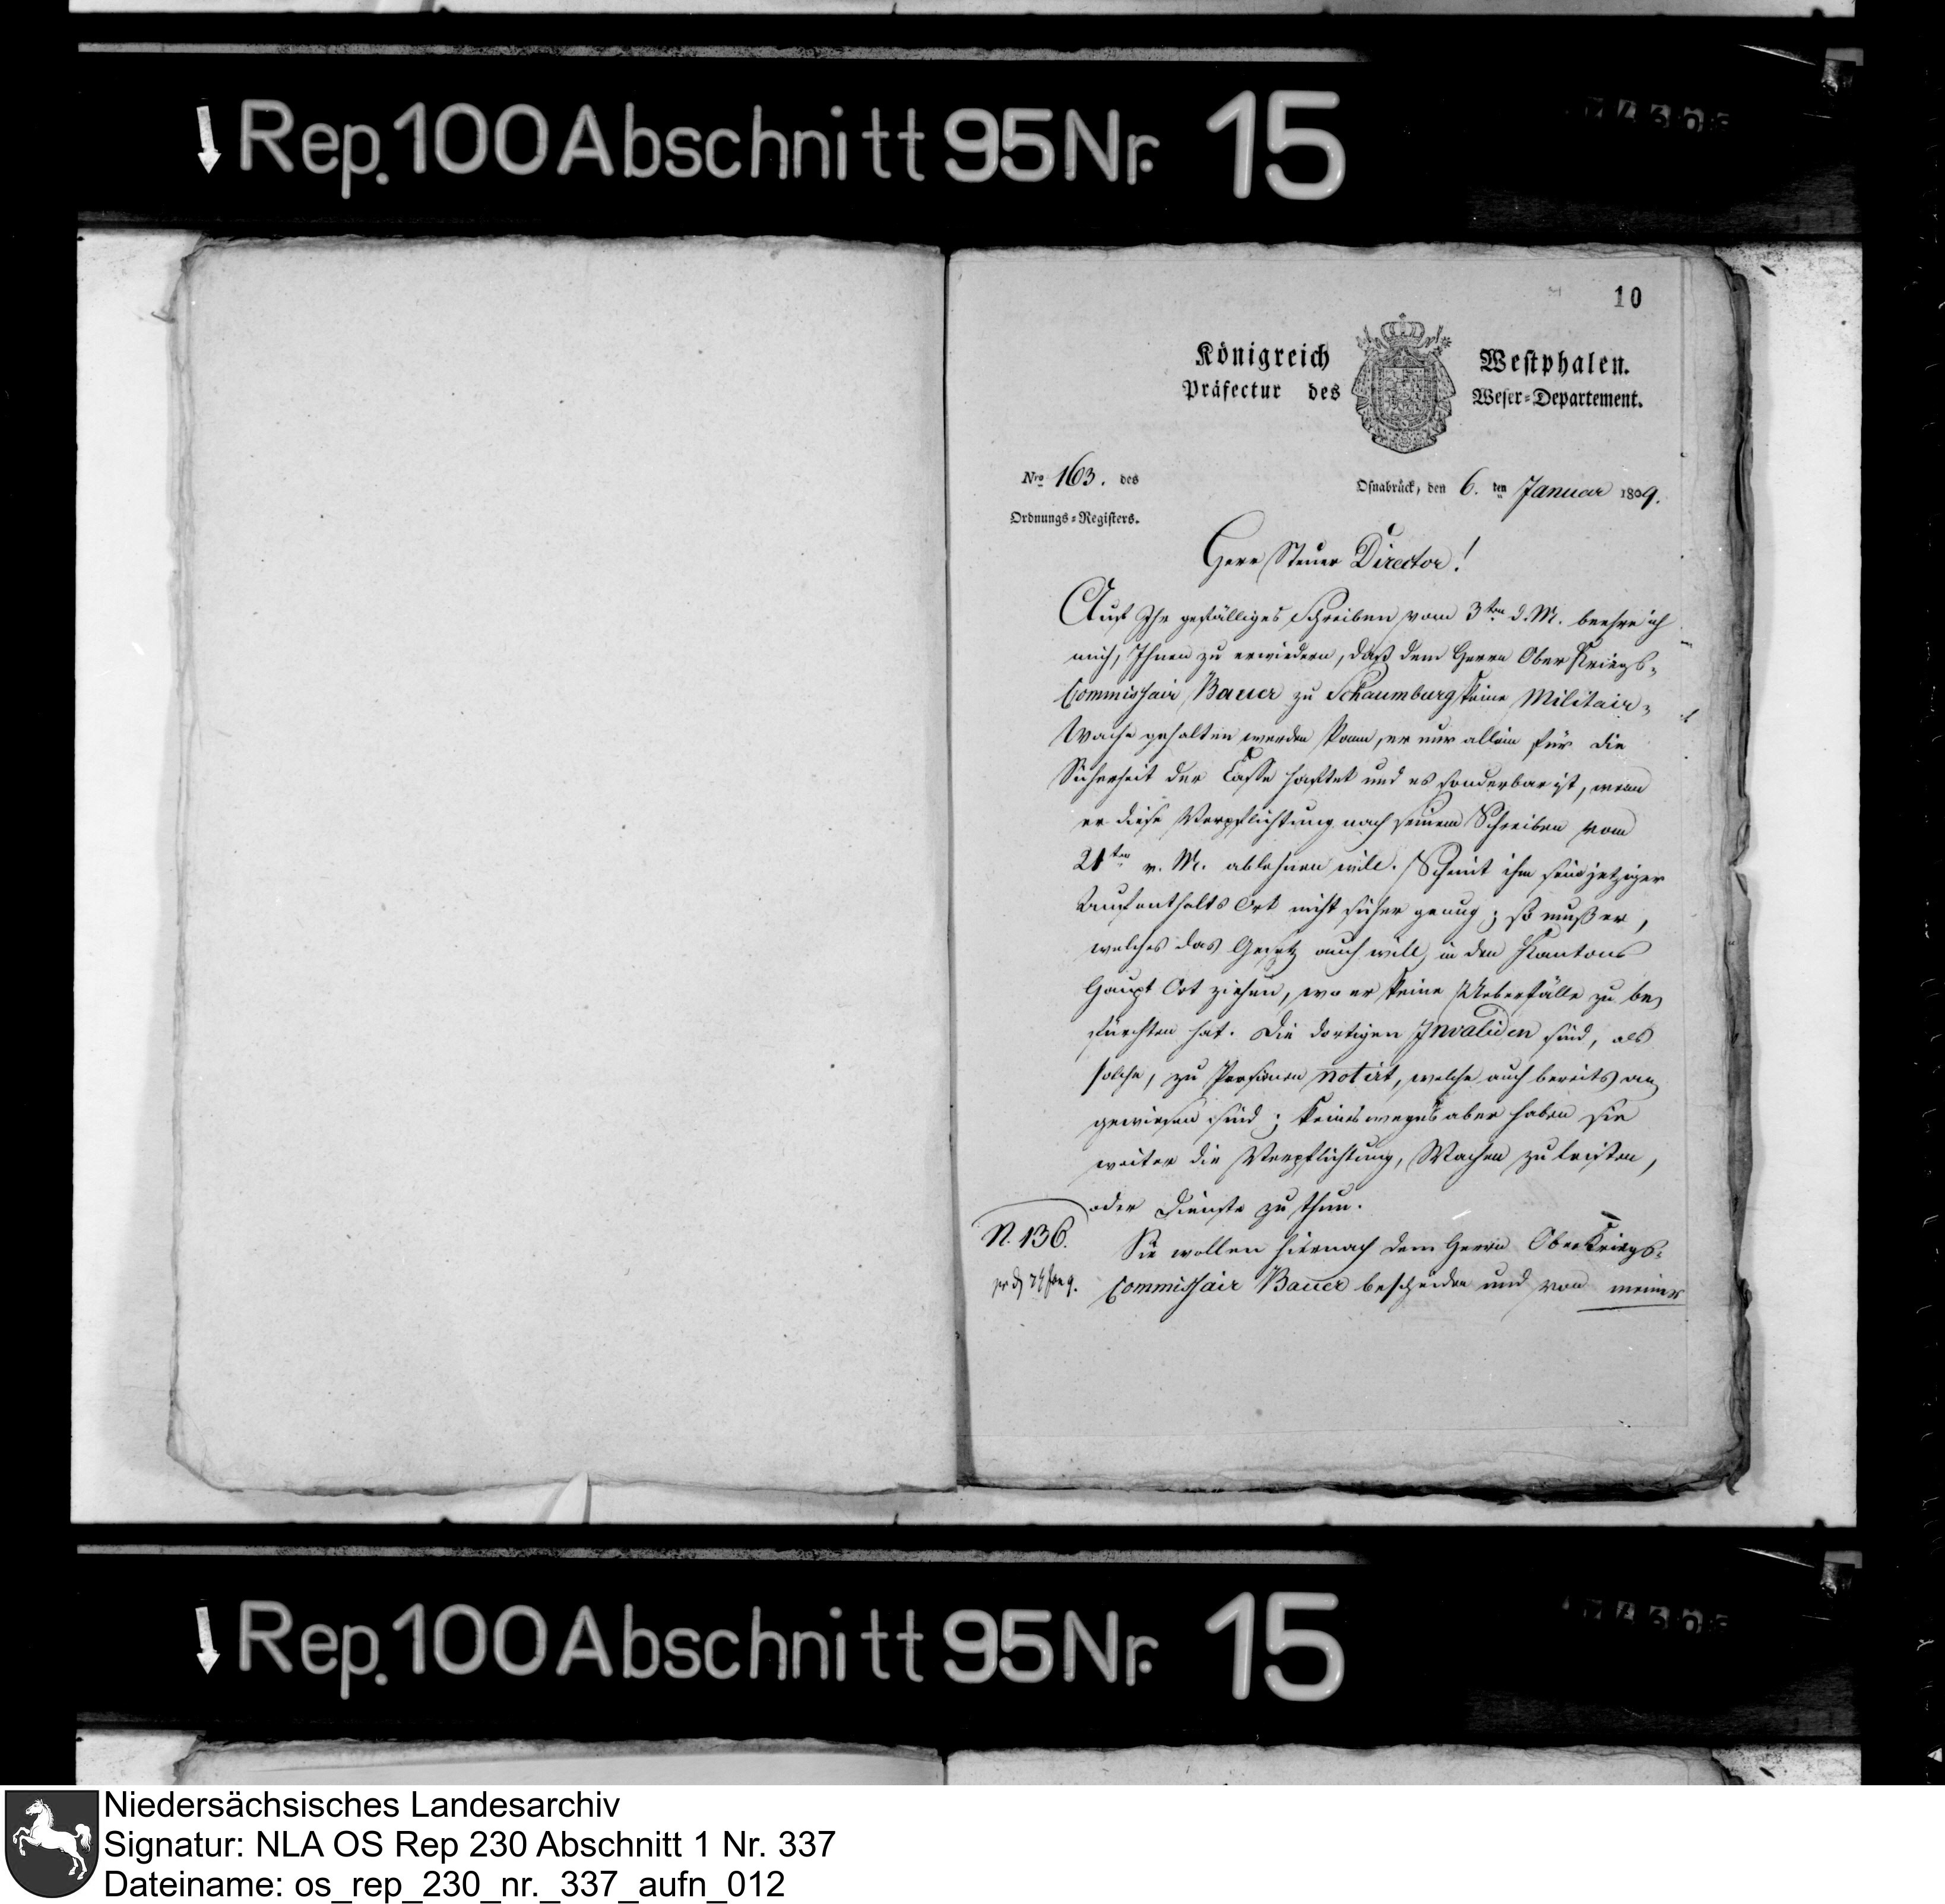 Rep. 100 Abschnitt 95 Nr. 15
10
Königreich Westphalen.
Präfectur des Weser=Departement.
Nro 163. des
Ordnungs=Registers.
Osnabrück, den 6. ten Januar 1809.
Herr Steuer Director!
Auf Ihr gefälliges Schreiben vom 3ten d. M. beehre ich
mich, Ihnen zu erwiedern, daß dem Herrn Ober Kriegs=
Commissair Bauer zu Schaumburg keine Militair=
Wache gehalten werden kann, er nur allein für die
Sicherheit der Casse haftet und es sonderbar ist, wenn
er diese Verpflichtung nach seinem Schreiben vom
21ten v. M. ablehnen will. Scheint ihm sein jetziger
Aufenthalts Ort nicht sicher genug; so muß er,
welches das Gesetz auch will, in den Kantons
Haupt Ort ziehen, wo er keine Ueberfälle zu be=
fürchten hat. Die dortigen Invaliden sind, als
solche, zu Pensionen notirt, welche auch bereits an=
gewiesen sind; keineswegs aber haben sie
weiter die Verpflichtung, Wachen zu leisten,
oder Dienste zu thun.
N. 136.
Sie wollen hiernach dem Herrn Ober Kriegs=
Commissair Bauer bescheiden und von meiner
Rep. 100 Abschnitt 95 Nr. 15
Niedersächsisches Landesarchiv
Signatur: NLA OS Rep 230 Abschnitt 1 Nr. 337
Dateiname: os_rep_230_nr._337_aufn_012